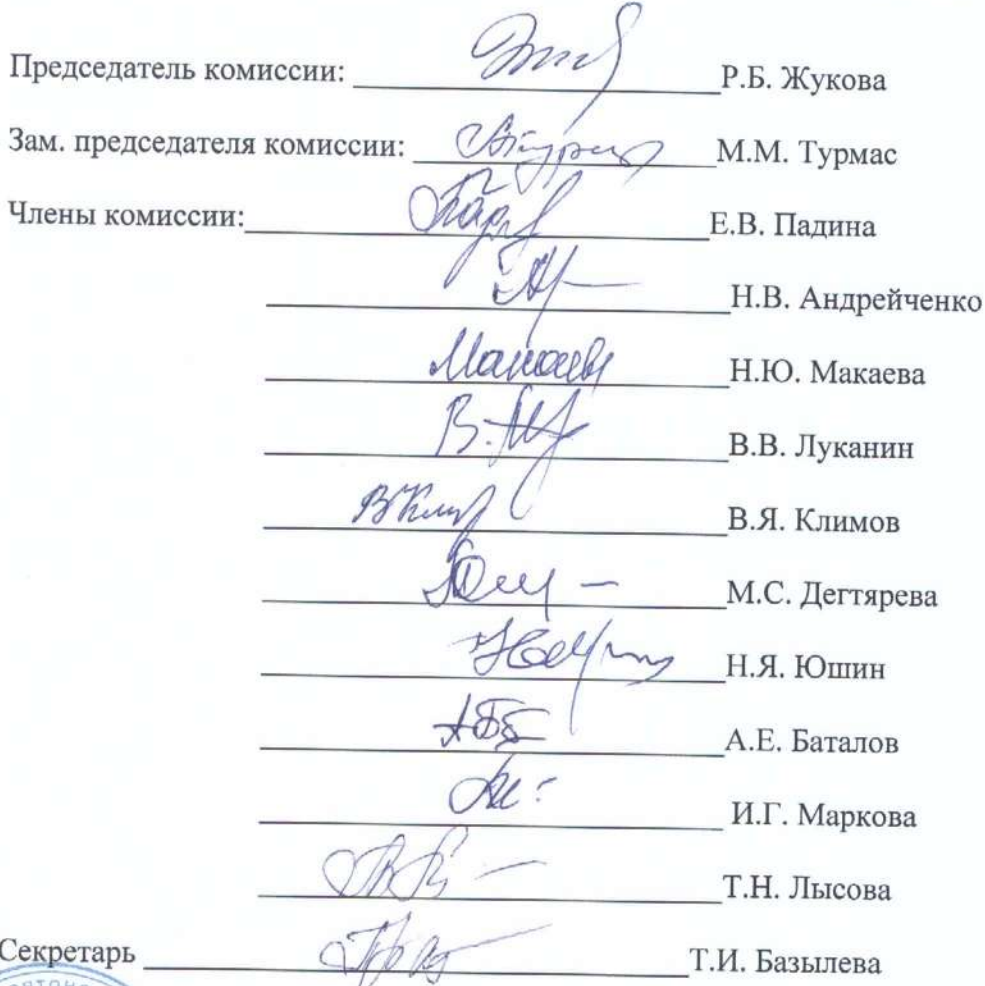 Председатель комиссии: Р.Б. Жукова
Зам. председателя комиссии: М.М. Турмас
Члены комиссии: Е.В. Падина
Н.В. Андрейченко
Н.Ю. Макаева
В.В. Луканин
В.Я. Климов
М.С. Дегтярева
Н.Я. Юшин
А.Е. Баталов
И.Г. Маркова
Т.Н. Лысова
Секретарь Т.И. Базылева